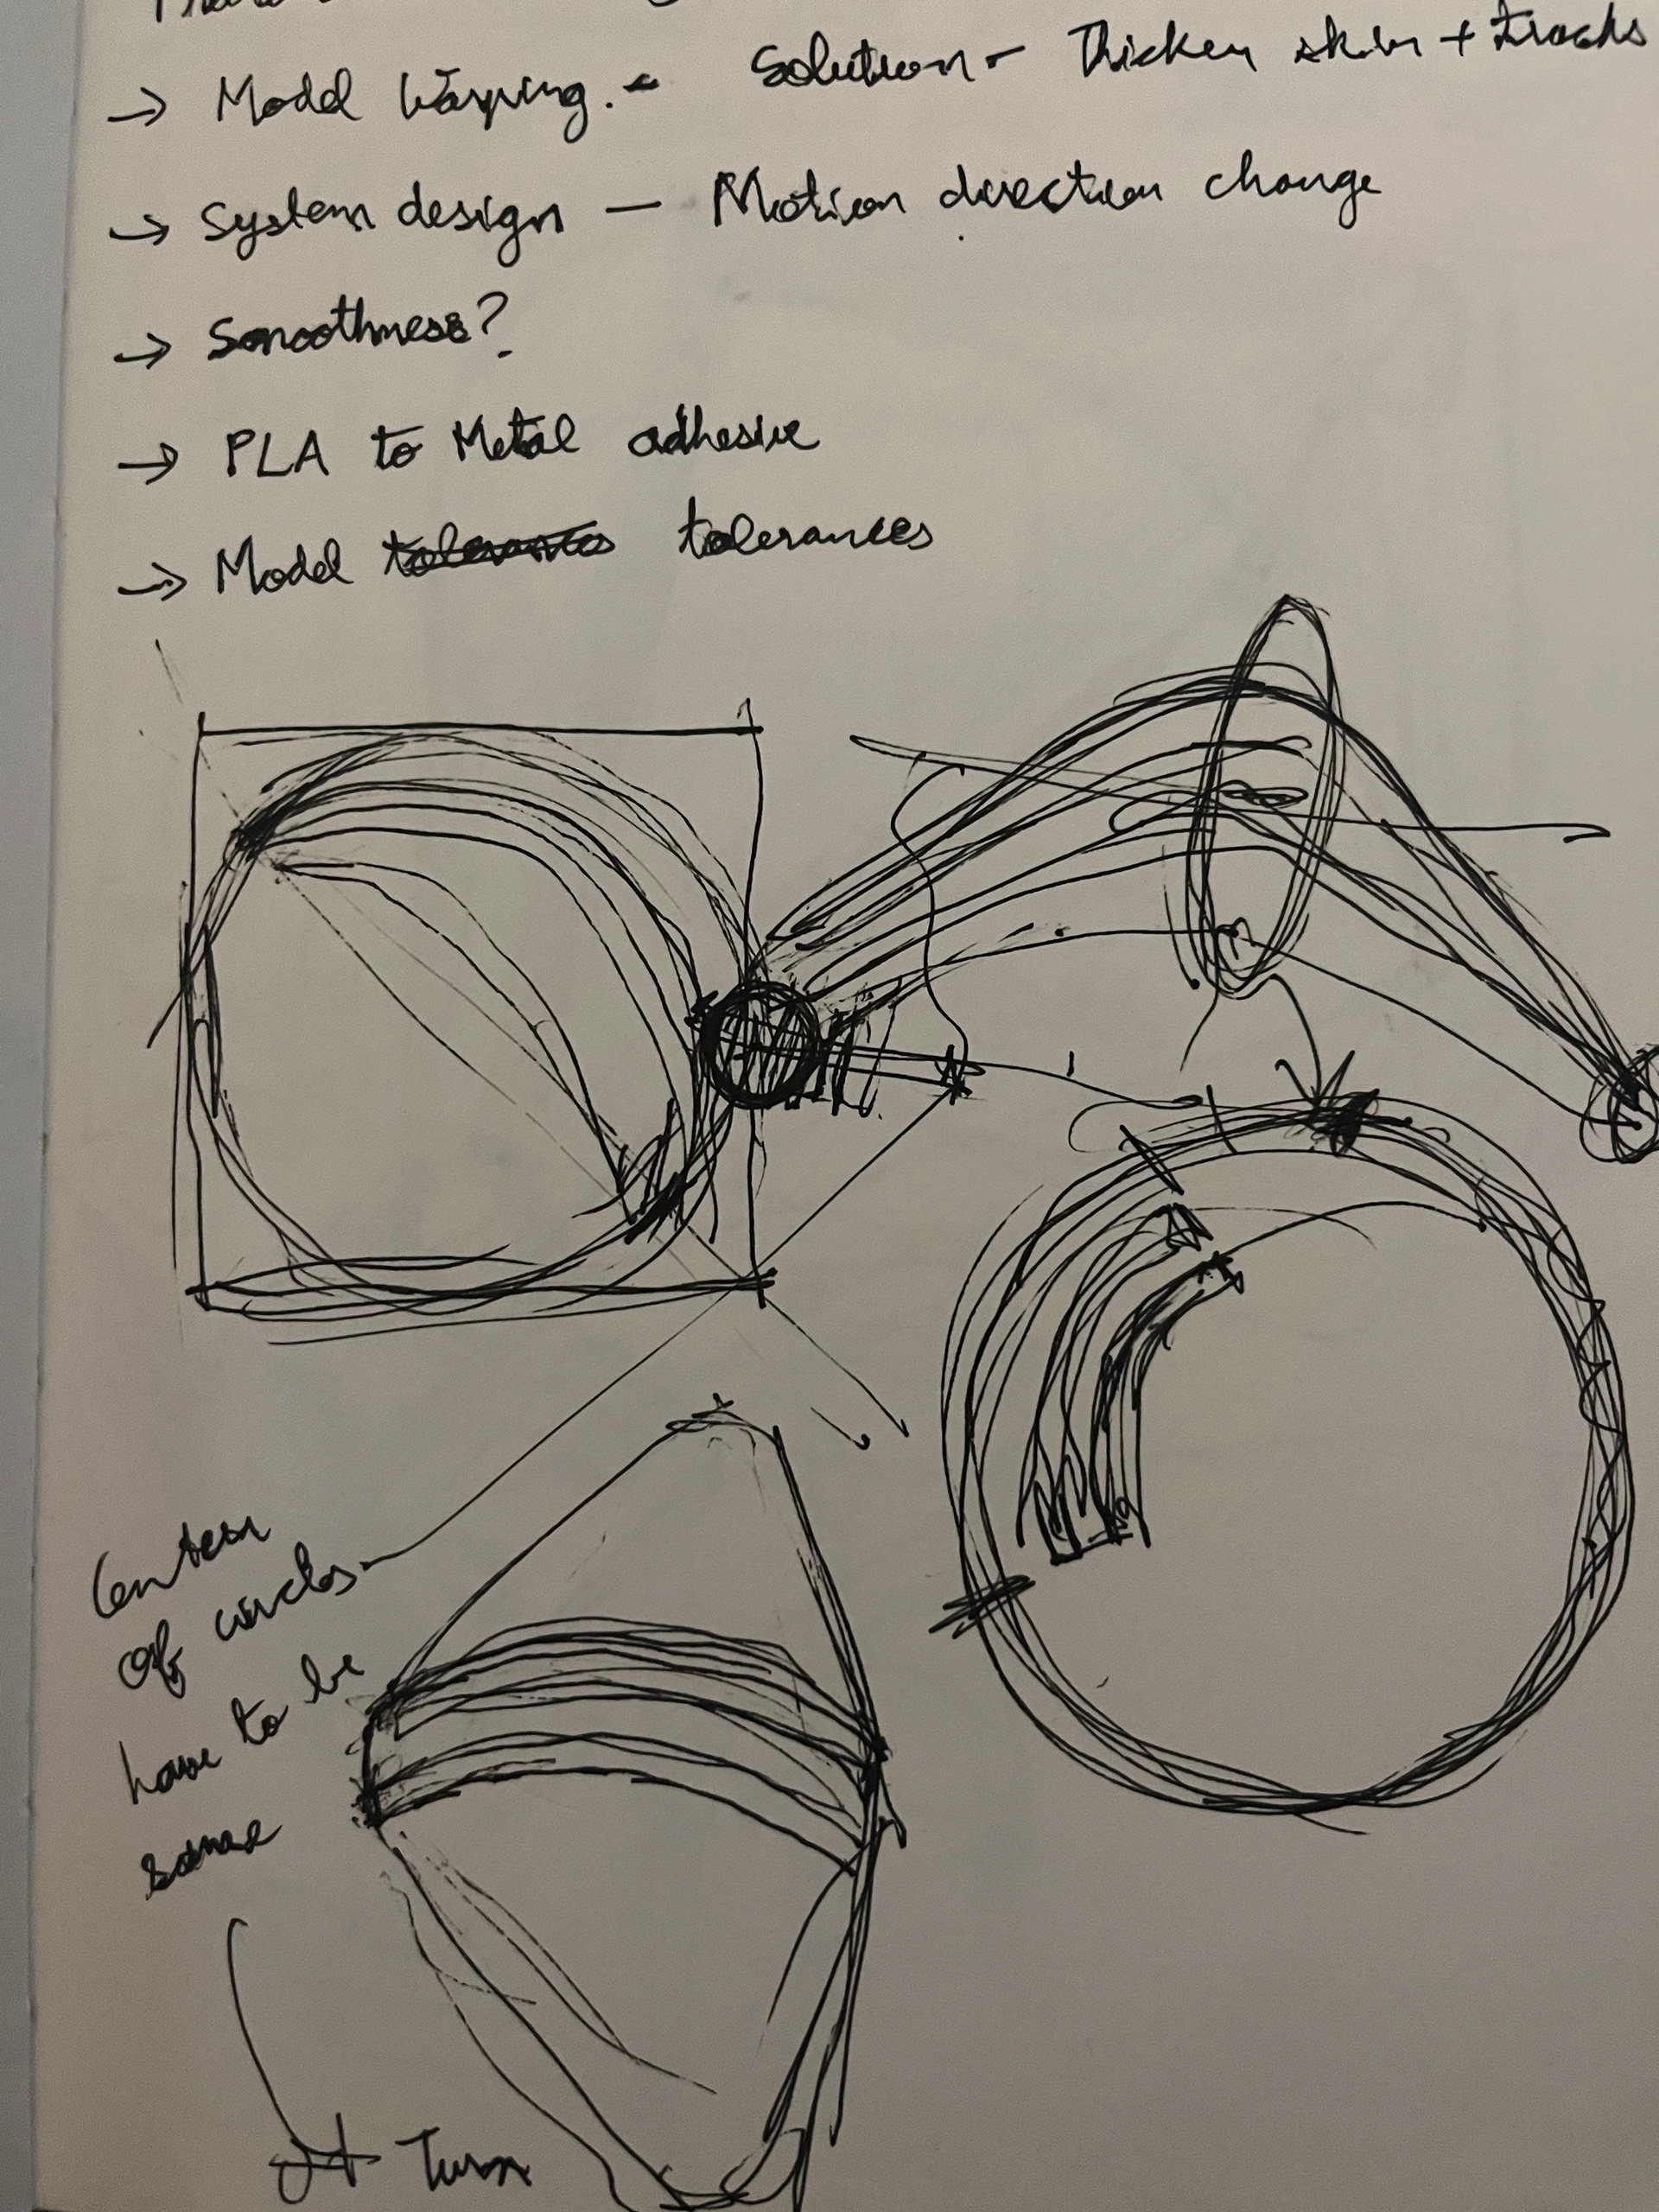 → Model Warping. - Solution - Thicker skin + tracks
→ System design — Motion direction change
→ Smoothness?
→ PLA to Metal adhesive
→ Model tolerances tolerances
Center
of circles
have to be
same
At Turn